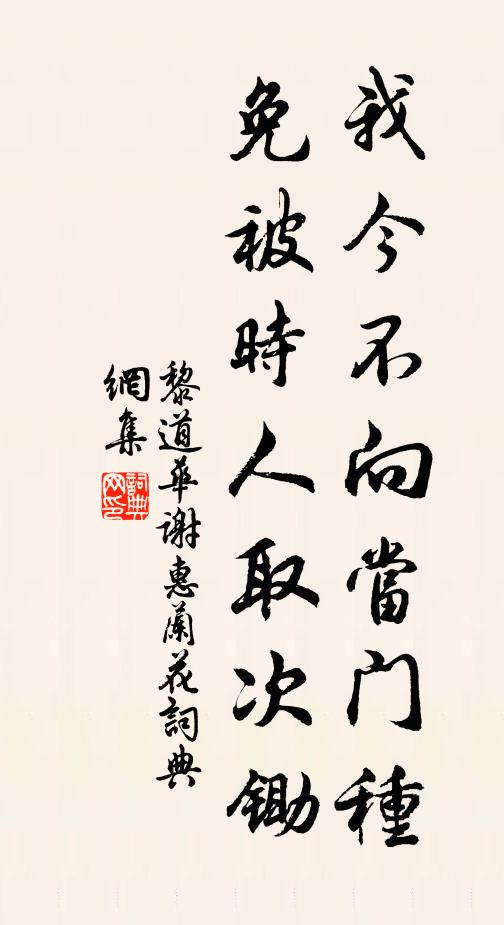 我今不向當門種
免被時人取次鋤
黎道華謝惠蘭花詞典
網集
詞典網印